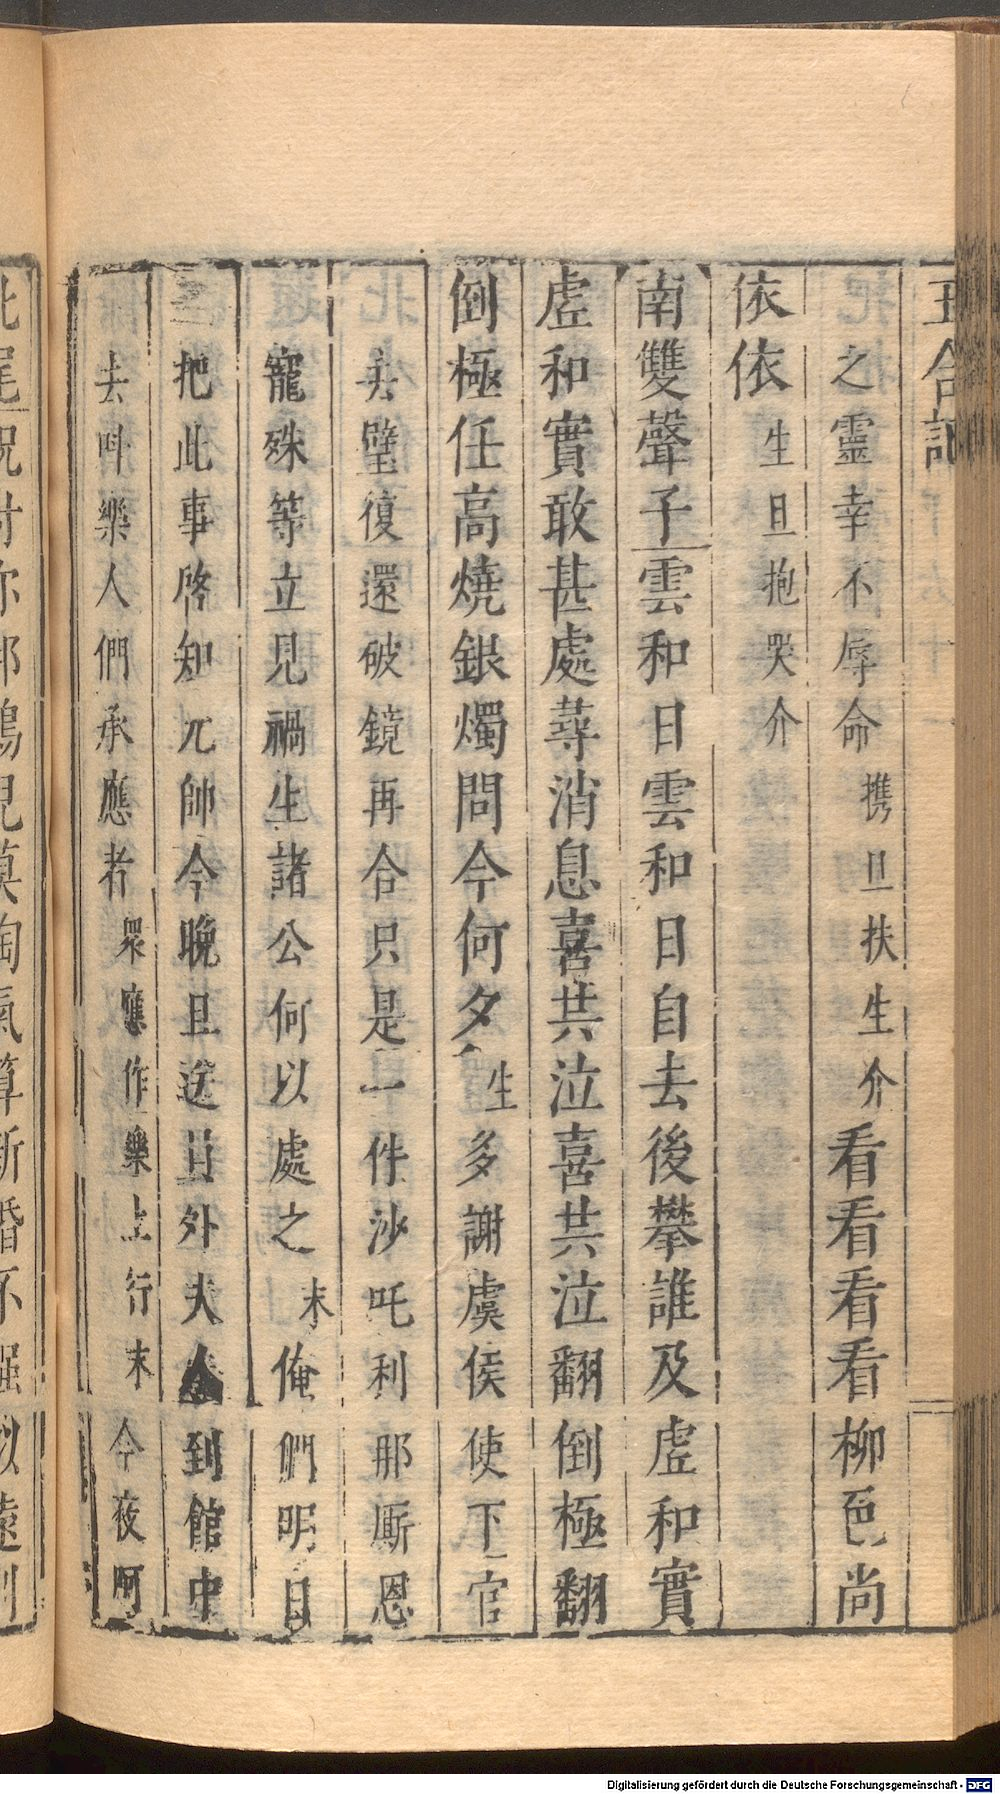 玉合記
之靈幸不辱命携旦扶生介看看看看柳色尚
依依生旦抱哭介
南雙聲子雲和日雲和日自去後攀誰及虛和實
虛和實敢甚處尋消息喜共泣喜共泣翻倒極翻
倒極任高燒銀燭問今何夕生多謝虞侯使下官
去璧復還破鏡再合只是一件沙吒利那厮恩
寵殊等立見禍生諸公何以處之末俺們明日
把此事啓知元帥今晚且送員外夫人到館中
去呌樂人們承應者衆應作樂上行末今夜呵
北尾
祝付你郎
兒莫淘氣算新婚不
似遠別
Digitalisierung gefördert durch die Deutsche Forschungsgemeinschaft - DFG